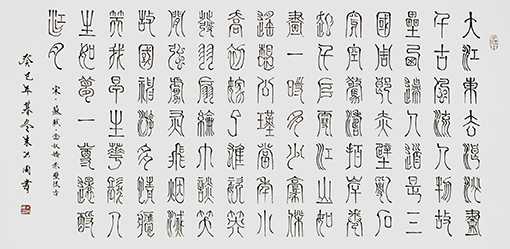 大江東去浪淘盡
千古風流人物故
壘西邊人道是三
國周郎赤壁亂石
穿空驚濤拍岸卷
起千堆雪江山如
畫一時多少豪傑
遙想公瑾當年小
喬初嫁了雄姿英
發羽扇綸巾談笑
間強虜灰飛烟滅
故國神遊多情應
笑我早生華髮人
生如夢一尊還酹
江月
宋·蘇軾念奴嬌赤壁懷古
癸巳年暮冬朱